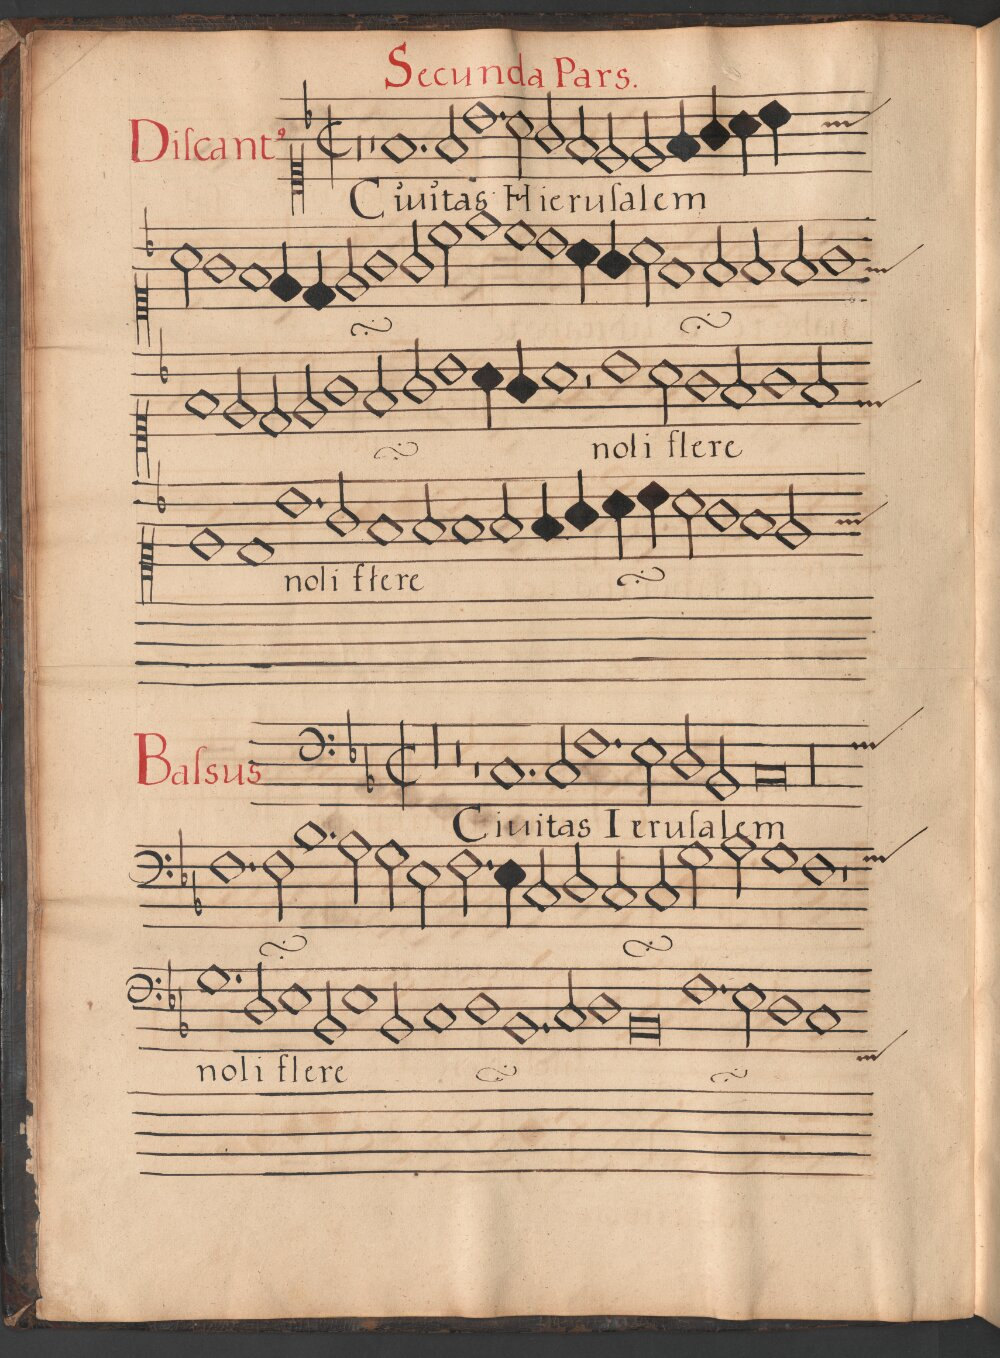 Secunda Pars.
Diſcantꝰ
Ciuitas Hieruſalem
noli flere
noli flere
Baſsus
Ciuitas Ieruſalem
noli flere